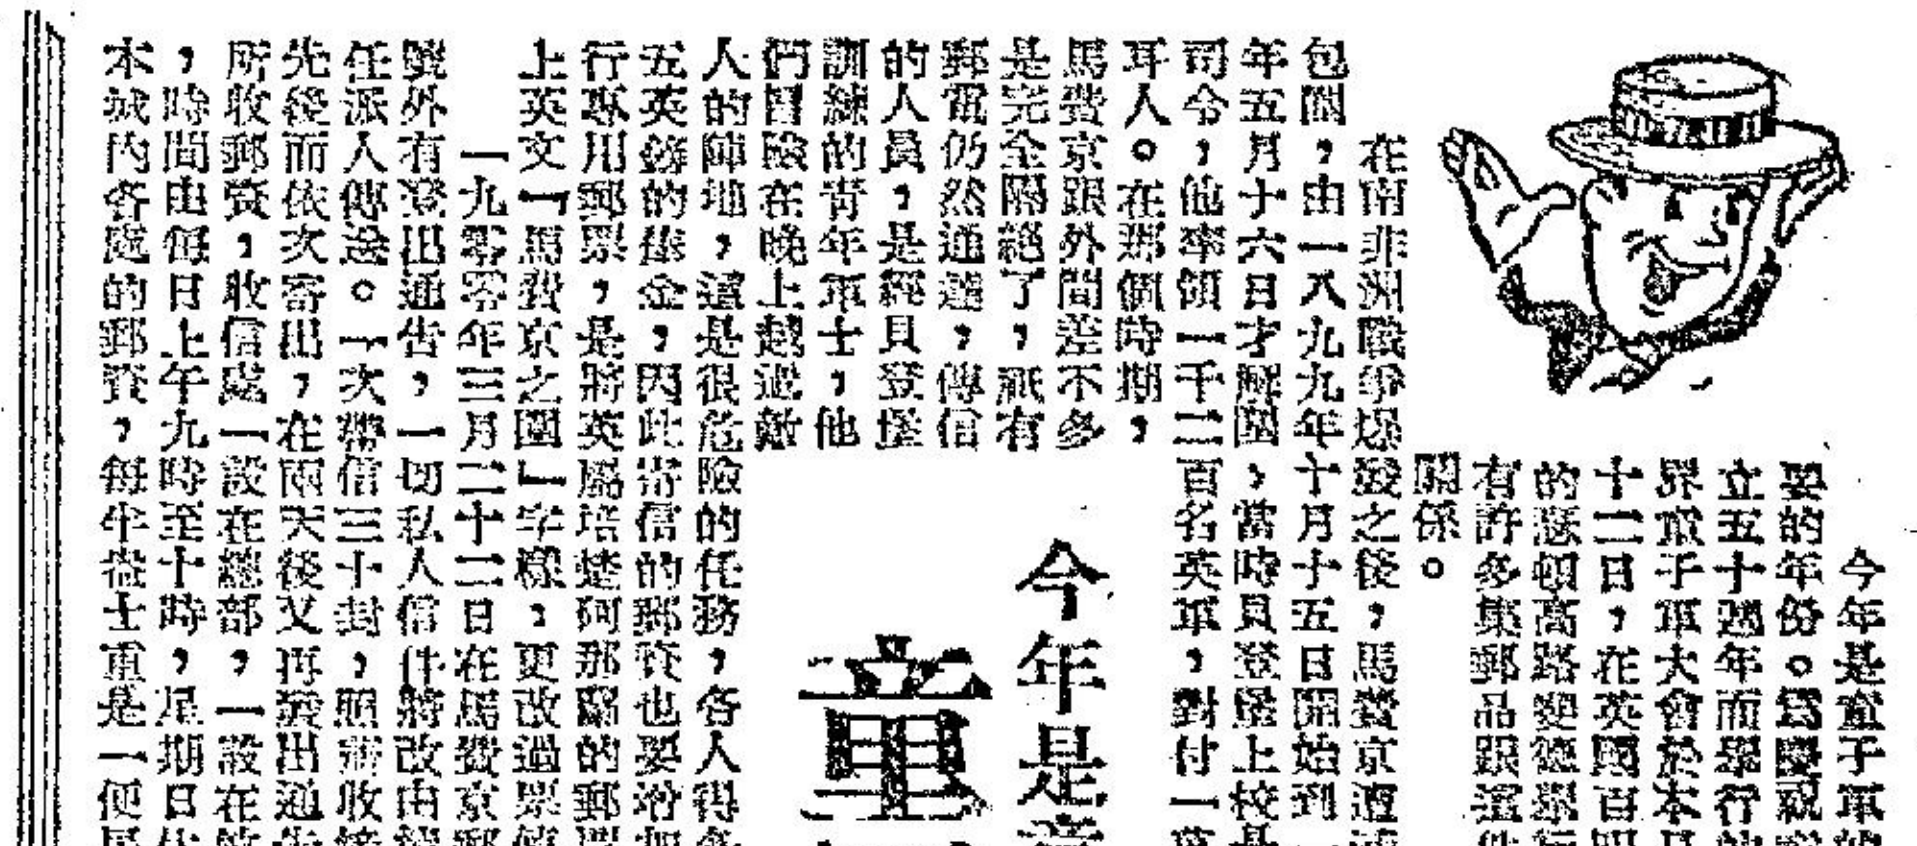 今年是童
童
今年是童子軍的
要的年份。爲慶祝
立五十週年而舉行的
界童子軍大會於本月
十二日，在英國百明
的頓高路舉行
有許多集郵品跟這件
關係。
在南非洲戰爭爆發之後，馬費京遭
包圍，由一八九九年十月十五日開始到一
年五月十六日才解圍，當時貝登堡上校是
司令，他率領一千二百名英軍，對付一萬
耳人。在那個時期，
馬費京跟外間差不多
是完全隔絕了，祇有
郵電仍然通達，傳信
的人員，是經貝登堡
訓練的青年軍士，他
們冒險在晚上越過敵
人的陣地，這是很危險的任務，各人得
五英鎊的俸金，因此寄信的郵資也要增加
行專用郵票，是將英屬培楚阿那蘭的郵票
上英文「馬費京之圍」字樣，更改過票值
一九零零年三月二十二日在馬費京郵
號外有登出通告，一切私人信件將改由
任派人傳送。「次帶信三十封，照收
先後而依次寄出，在兩天後又再發出通告
所收郵資，收信處一設在總部，一設在
，時間由每日上午九時至十時，星期日休
本城內各處的郵資，每半盎士重是一便